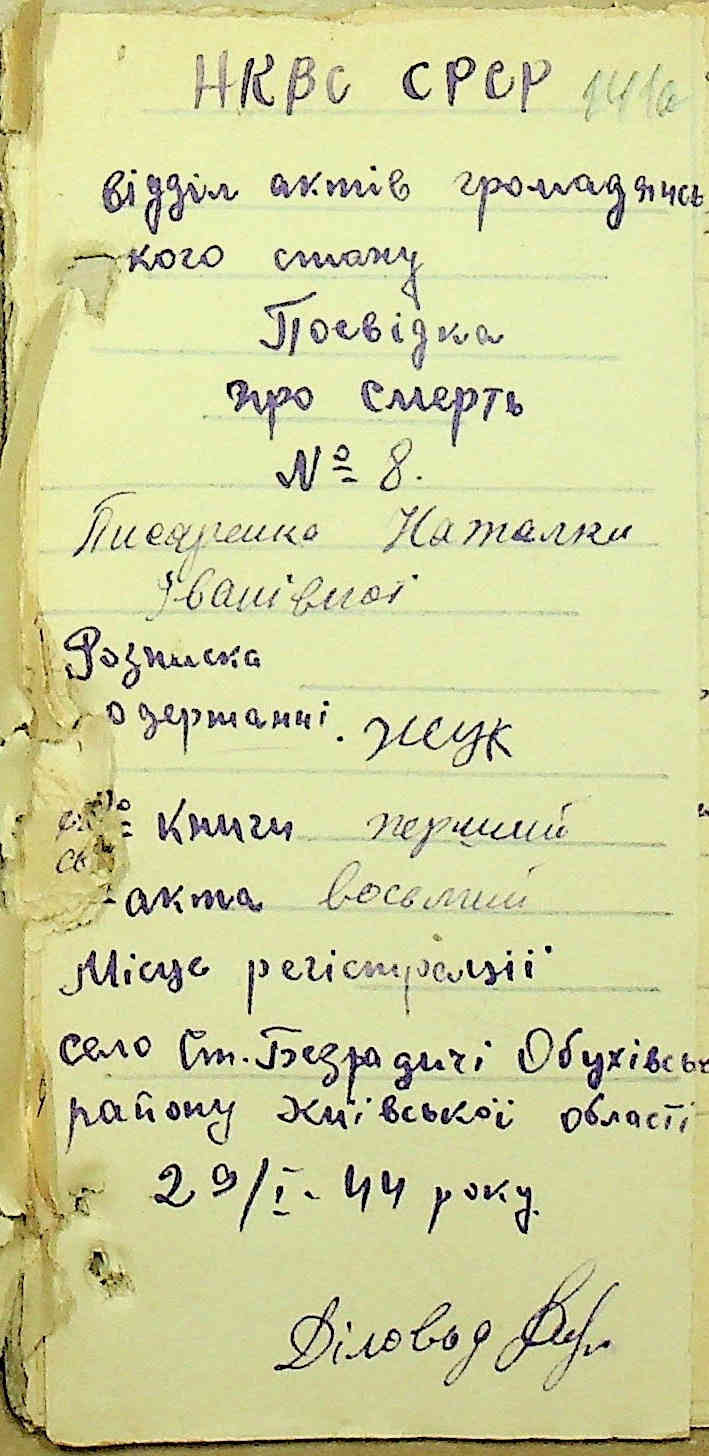 НКВС СРСР 141а
відділ актів громадянсь
-кого стану
Посвідка
про смерть
№ 8.
Писаренко Наталки
Іванівної
Розписка
одержанні. Жук
№ книги перший
акта восьмий
Місце регістрації
село Ст. Безрадичі Обухівськ
району Київської області
29/I- 44 року.
Діловод